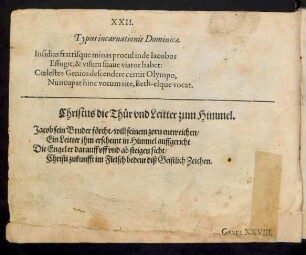 XXII.
Typus incarnationis Dominicæ.
Insidias fratrisque minas procul inde Iacobus
Effugit, & visum suaue viator habet:
Cœlestes Genios descendere cernit Olympo,
Nuncupat hinc votum rite, Beth-elque vocat.
Christus die Thür vnd Leitter zum Himmel.
Jacob sein Bruder förcht / will seinem zorn entweichen /
Ein Leitter jhm erscheint in Himmel auffgericht
Die Engel er darauff off vnd ab steigen sicht /
Christi zukunfft im Fleisch bedeut diß Geistlich Zeichen.
XXVIII.